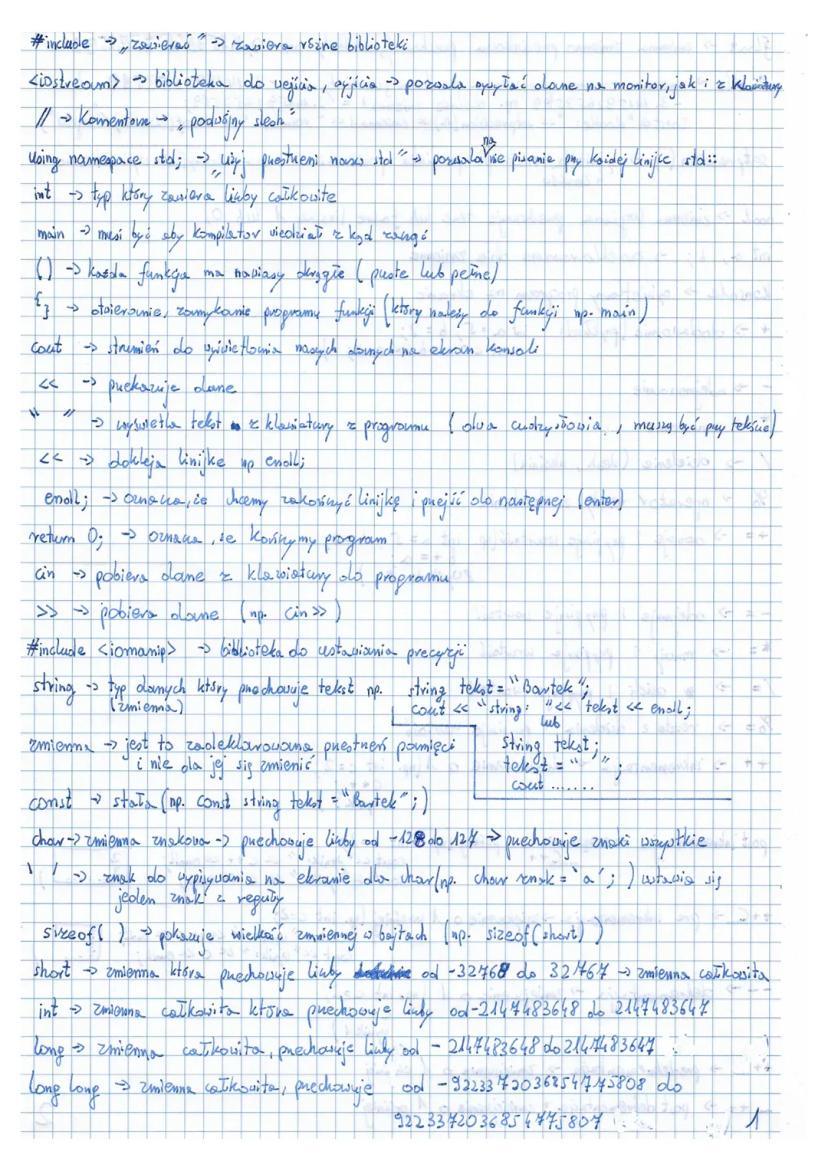 #include -> „zawierać" -> zawiera różne biblioteki
<iostream> -> biblioteka do wejścia, wyjścia -> pozwala wysyłać dane na monitor, jak i z klawiatury
// -> Komentowe -> „podwójny slesh"
Using namespace std; -> „użyj przestrzeni nazw std" -> pozwala na nie pisanie przy każdej linijce std::
int -> typ który zawiera liczby całkowite
main -> musi być aby kompilator wiedział z kąd zacząć
() -> każda funkcja ma nawiasy okrągłe (puste lub pełne)
{} -> otwieranie, zamykanie programu funkcji (który należy do funkcji np. main)
cout -> strumień do wyświetlania naszych danych na ekran konsoli
<< -> przekazuje dane
" " -> wyświetla tekst z klawiatury z programu (dwa cudzysłowia, muszą być przy tekście)
<< -> dokleja linijke np endl;
endl; -> oznacza, że chcemy zakończyć linijkę i przejść do następnej (enter)
return 0; -> oznacza, że kończymy program
cin -> pobiera dane z klawiatury do programu
>> -> pobiera dane (np. cin>>)
#include <iomanip> -> biblioteka do ustawiania precyzji
string -> typ danych który przechowuje tekst np. string tekst = "Bartek";
(zmienna) cout << "string: " << tekst << endl;
lub
zmienna -> jest to zadeklarowana przestrzeń pamięci string tekst;
i nie da jej się zmienić tekst = " ";
cout .......
const -> stała (np. const string tekst = "Bartek";)
char -> zmienna znakowa -> przechowuje liczby od -128 do 127 -> przechowuje znaki wszystkie
' ' -> znak do wypisywania na ekranie dla char (np. char znak = 'a';) wstawia się
jeden znak z reguły
sizeof( ) -> pokazuje wielkość zmniennej w bajtach (np. sizeof(short))
short -> zmienna która przechowuje liczby od -32768 do 32767 -> zmienna całkowita
int -> zmienna całkowita która przechowuje liczby od -2147483648 do 2147483647
long -> zmienna całkowita, przechowuje liczby od -2147483648 do 2147483647
long long -> zmienna całkowita, przechowuje od -9223372036854775808 do
9223372036854775807
1